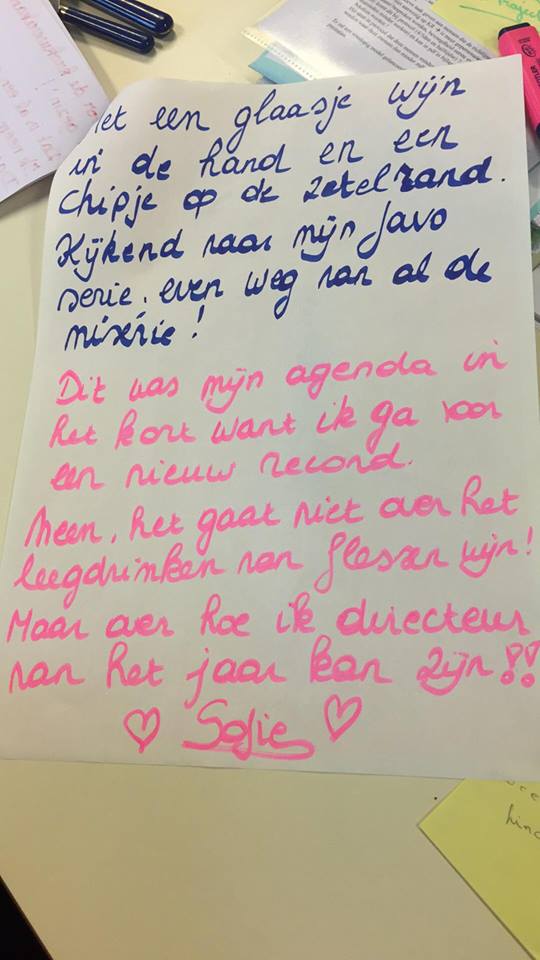 Met een glaasje wijn
in de hand en een
chipje op de zetelrand.
Kijkend naar mijn favo
serie, even weg van al de
misérie!
Dit was mijn agenda in
het kort want ik ga voor
een nieuw record.
Neen, het gaat niet over het
leegdrinken van flessen wijn!
Maar over hoe ik directeur
van het jaar kan zijn!!
♡ Sofie ♡